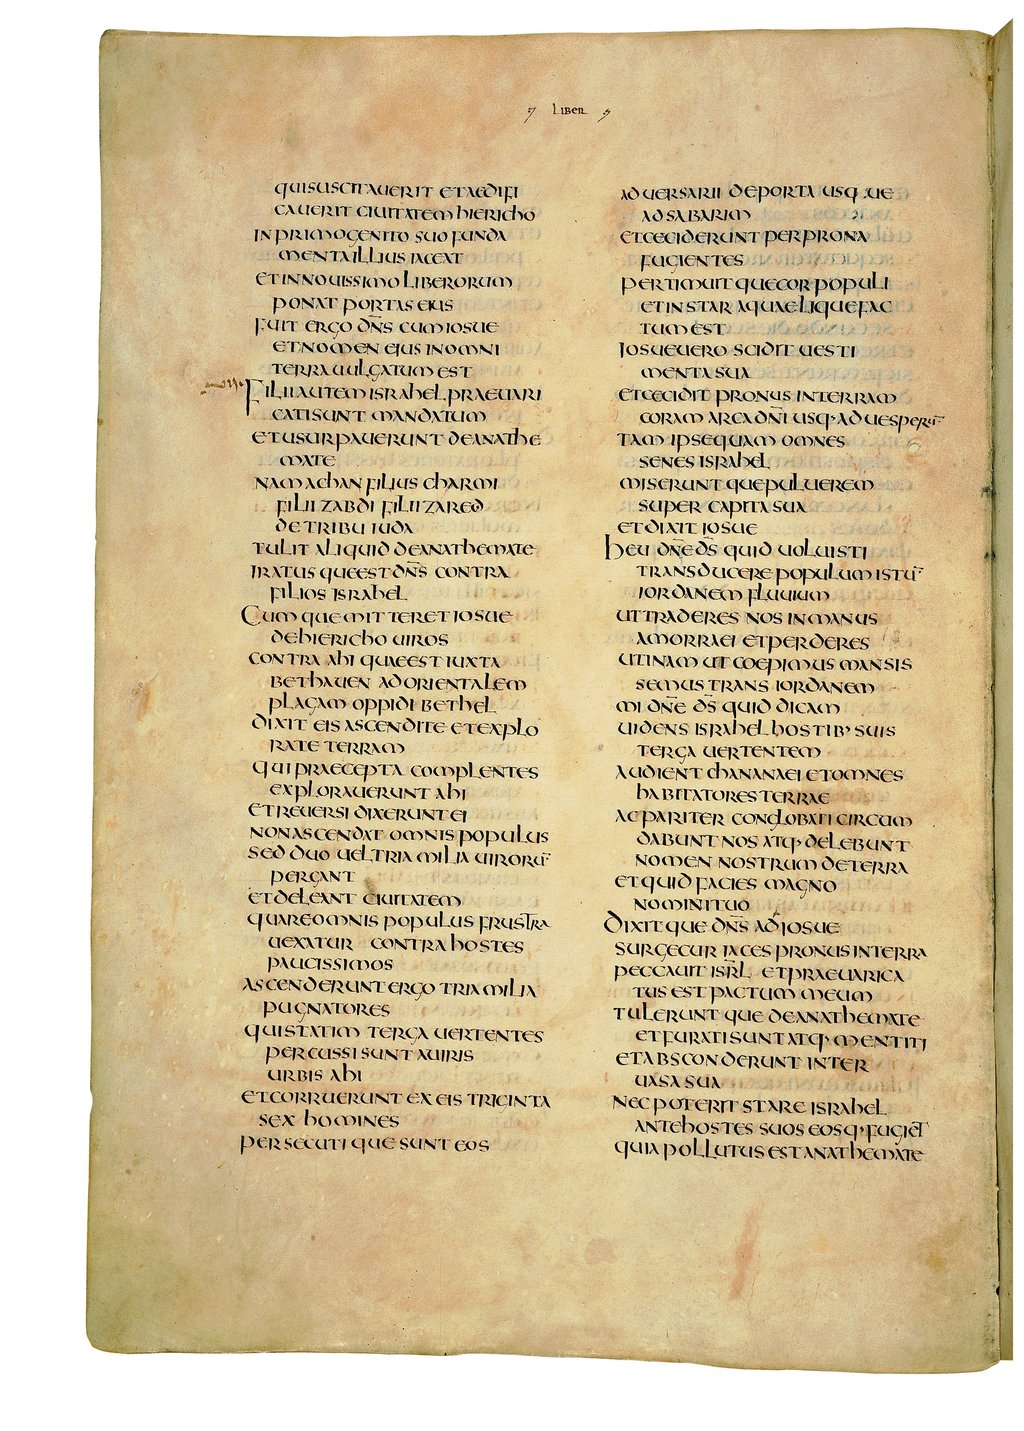 LIBER
qui suscitaverit et aedifi
caverit civitatem hiericho
in primogenito suo funda
menta illius iaceat
et in novissimo liberorum
ponat portas eius
fuit ergo dn̄s cum iosue
et nomen eius in omni
terra vulgatum est
Filii autem israhel praevari
cati sunt mandatum
et usurpaverunt de anathe
mate
nam achan filius charmi
filii zabdi filii zared
de tribu iuda
tulit aliquid de anathemate
iratusque est dn̄s contra
filios israhel
Cumque mitteret iosue
de hiericho viros
contra ahi quae est iuxta
bethaven ad orientalem
plagam oppidi bethel
dixit eis ascendite et explo
rate terram
qui praecepta complentes
exploraverunt ahi
et reversi dixerunt ei
non ascendat omnis populus
sed duo vel tria milia viroru̅
pergant
et deleant civitatem
quare omnis populus frustra
vexatur contra hostes
paucissimos
ascenderunt ergo tria milia
pugnatores
qui statim terga vertentes
percussi sunt a viris
urbis ahi
et corruerunt ex eis triginta
sex homines
persecutique sunt eos
adversarii de porta usq· ue
ad sabarim
et ceciderunt per prona
fugientes
pertimuitque cor populi
et instar aquae liquefac
tum est
iosue vero scidit vesti
menta sua
et cecidit pronus in terram
coram arca dn̄i usq· ad vesperu̅
tam ipse quam omnes
senes israhel
miseruntque pulverem
super capita sua
et dixit iosue
heu dn̄e dn̄s quid voluisti
transducere populum istu̅
iordanem fluvium
ut traderes nos in manus
amorraei et perderes
utinam ut coepimus mansis
semus trans iordanem
mi dn̄e dn̄s quid dicam
videns israhel hostib· suis
terga vertentem
audient chananaei et omnes
habitatores terrae
ac pariter conglobati circum
dabunt nos atq· delebunt
nomen nostrum de terra
et quid facies magno
nomini tuo
Dixitque dn̄s ad iosue
surge cur iaces pronus in terra
peccavit isrl̄ et praevarica
tus est pactum meum
tuleruntque de anathemate
et furati sunt atq· mentiti
et absconderunt inter
vasa sua
nec poterit stare israhel
ante hostes suos eosq· fugiet
quia pollutus est anathemate